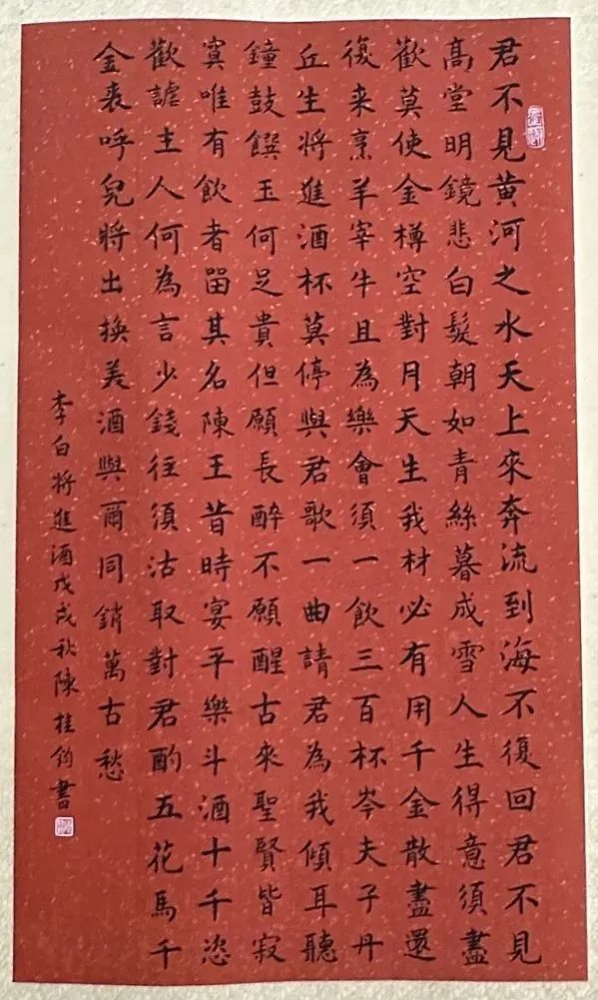 君不見黃河之水天上來奔流到海不復回君不見
高堂明鏡悲白髮朝如青絲暮成雪人生得意須盡
歡莫使金樽空對月天生我材必有用千金散盡還
復来烹羊宰牛且為樂會須一飲三百杯岑夫子丹
丘生將進酒杯莫停與君歌一曲請君為我傾耳聽
鐘鼓饌玉何足貴但願長醉不願醒古來聖賢皆寂
寞唯有飲者留其名陳王昔時宴平樂斗酒十千恣
歡謔主人何為言少錢徑須沽取對君酌五花馬千
金裘呼兒將出換美酒與爾同銷萬古愁
李白將進酒戊戌秋陳桂鈞書